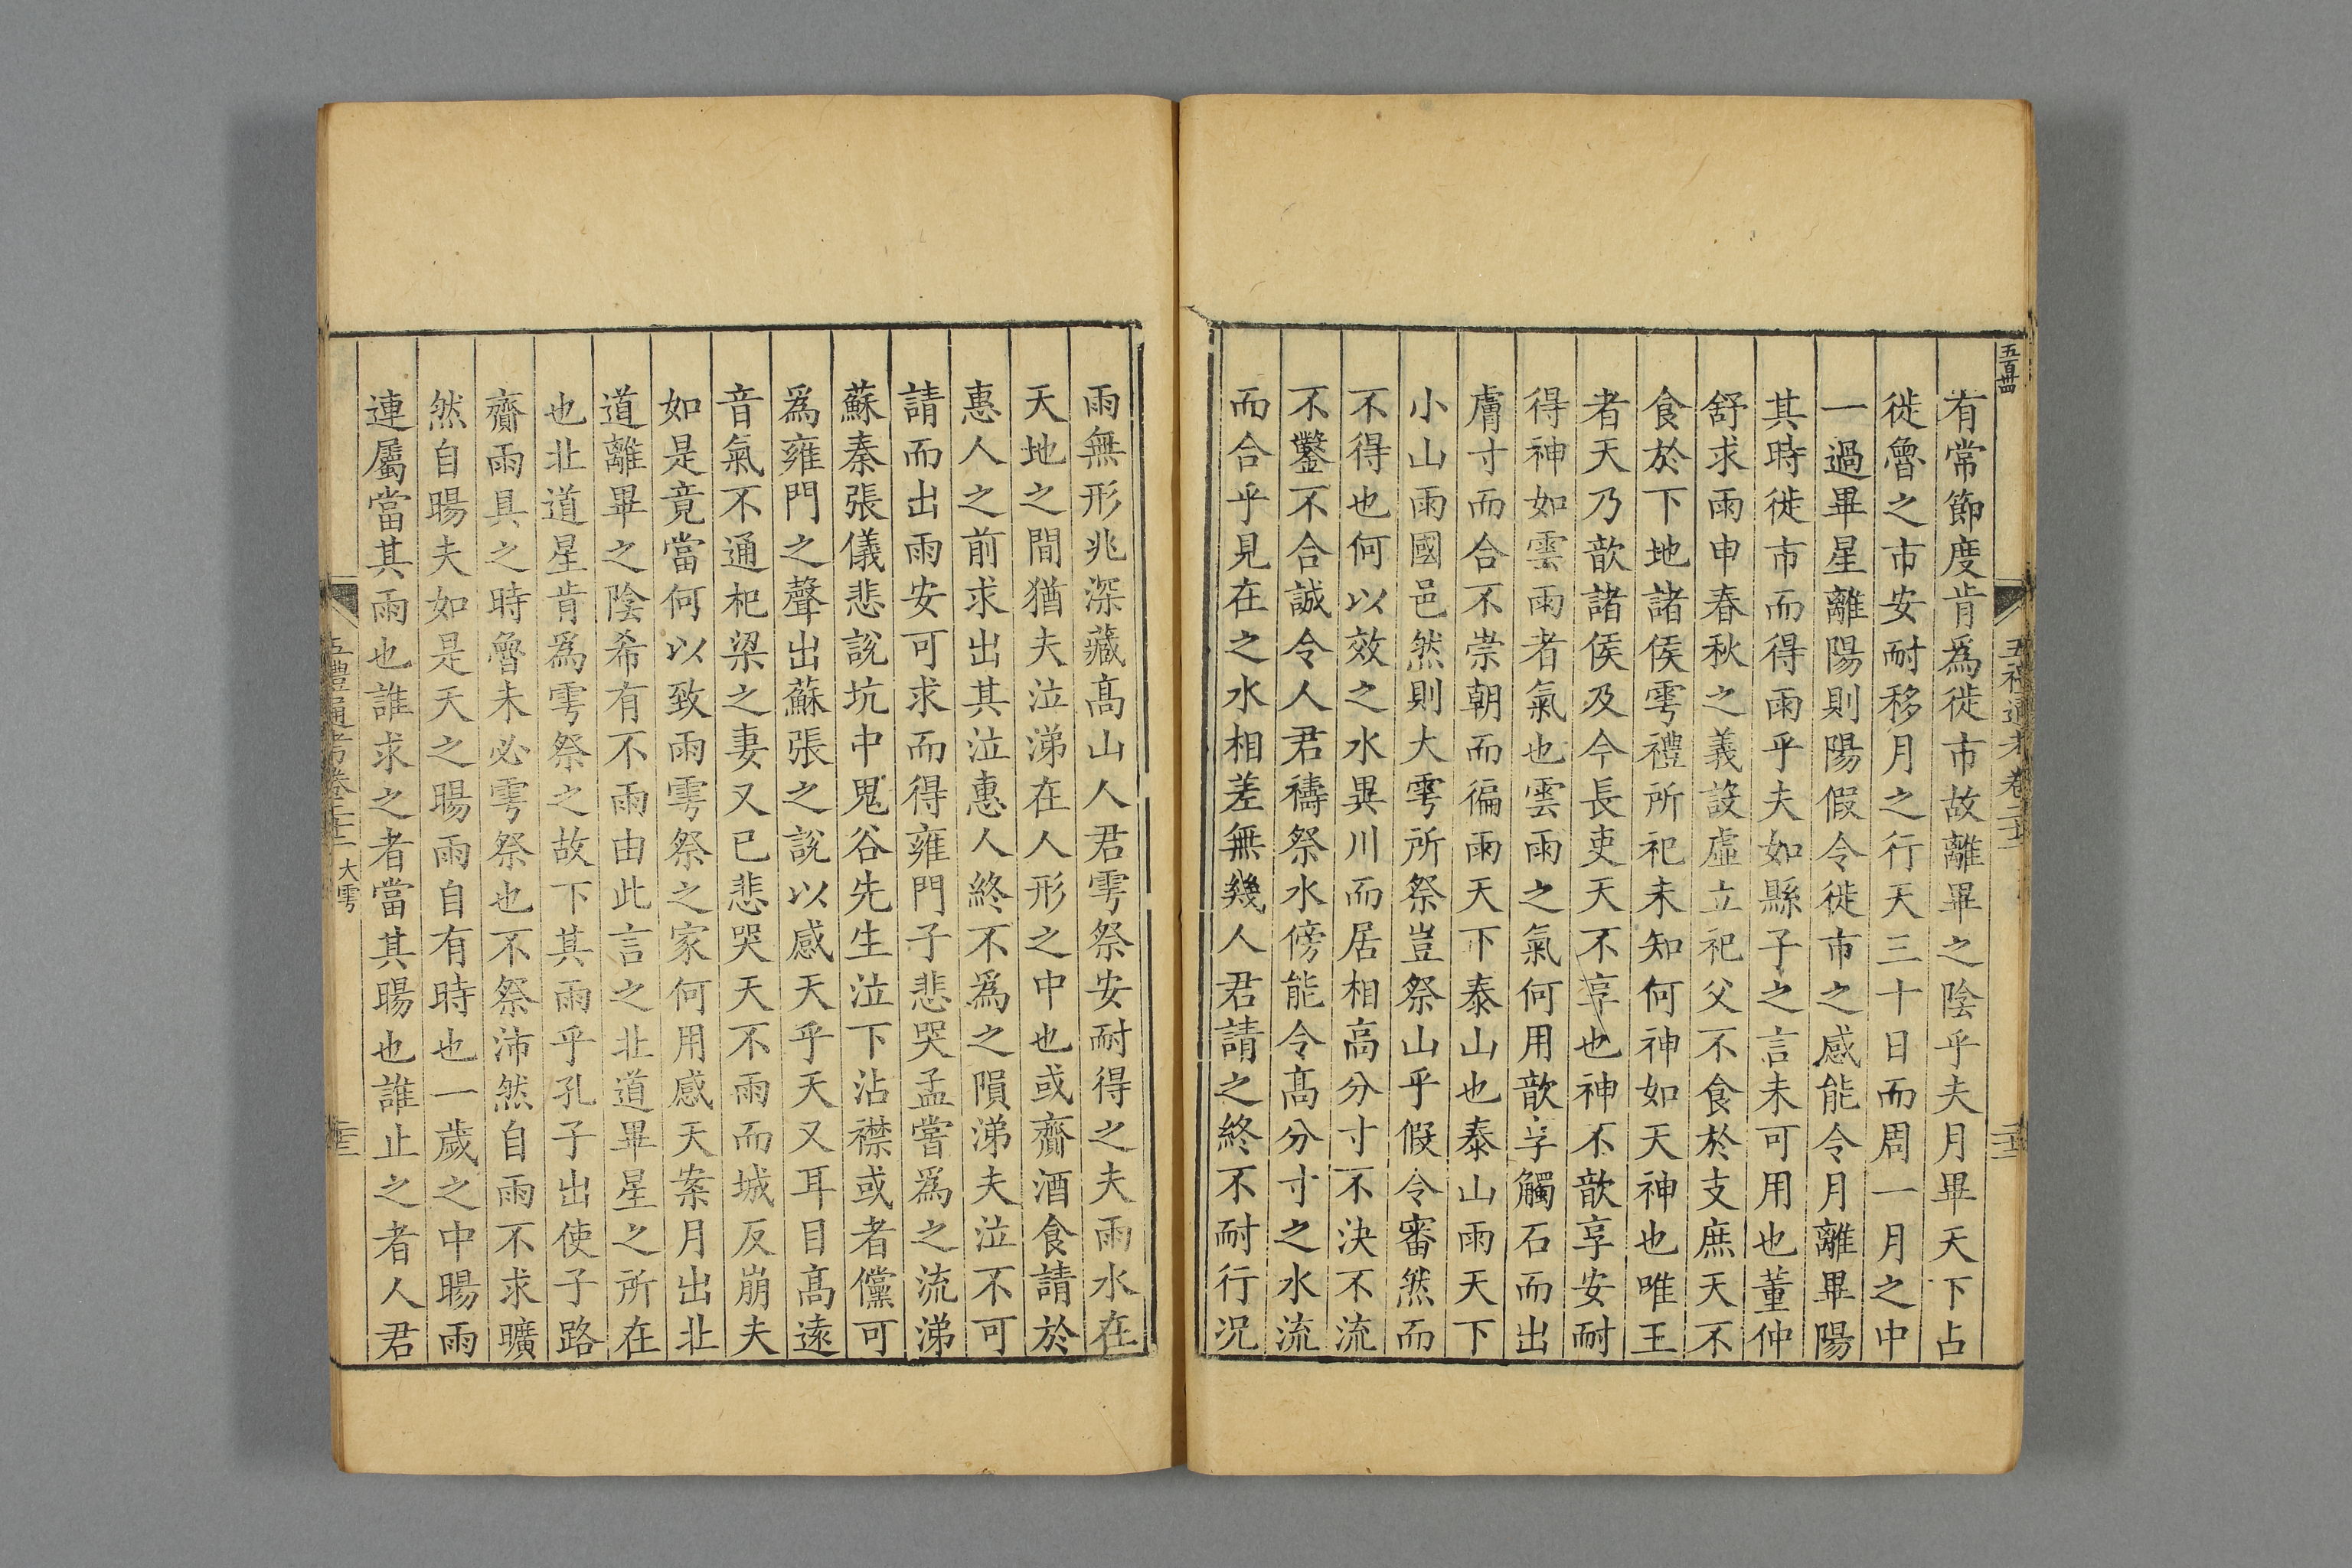 五百卌
五禮通考卷二十二
有常節度肯爲徙市故離畢之陰乎夫月畢天下占
徙魯之市安耐移月之行天三十日而周一月之中
一過畢星離陽則陽假令徙市之感能令月離畢陽
其時徙市而得雨乎夫如縣子之言未可用也董仲
舒求雨申春秋之義設虛立祀父不食於支庶天不
食於下地諸侯雩禮所祀未知何神如天神也唯王
者天乃歆諸侯及今長吏天不享也神不歆享安耐
得神如雲雨者氣也雲雨之氣何用歆享觸石而出
膚寸而合不崇朝而徧雨天下泰山也泰山雨天下
小山雨國邑然則大雩所祭豈祭山乎假令審然而
不得也何以效之水異川而居相高分寸不決不流
不鑿不合誠令人君禱祭水傍能令高分寸之水流
而合乎見在之水相差無幾人君請之終不耐行况
雨無形兆深藏高山人君雩祭安耐得之夫雨水在
天地之間猶夫泣涕在人形之中也或齎酒食請於
惠人之前求出其泣惠人終不爲之隕涕夫泣不可
請而出雨安可求而得雍門子悲哭孟嘗爲之流涕
蘇秦張儀悲說坑中鬼谷先生泣下沾襟或者儻可
爲雍門之聲出蘇張之說以感天乎天又耳目高遠
音氣不通杞梁之妻又已悲哭天不雨而城反崩夫
如是竟當何以致雨雩祭之家何用感天案月出北
道離畢之陰希有不雨由此言之北道畢星之所在
也北道星肯爲雩祭之故下其雨乎孔子出使子路
齎雨具之時魯未必雩祭也不祭沛然自雨不求曠
然自暘夫如是天之暘雨自有時也一歲之中暘雨
連屬當其雨也誰求之者當其暘也誰止之者人君
五禮通考卷二十二 大雩